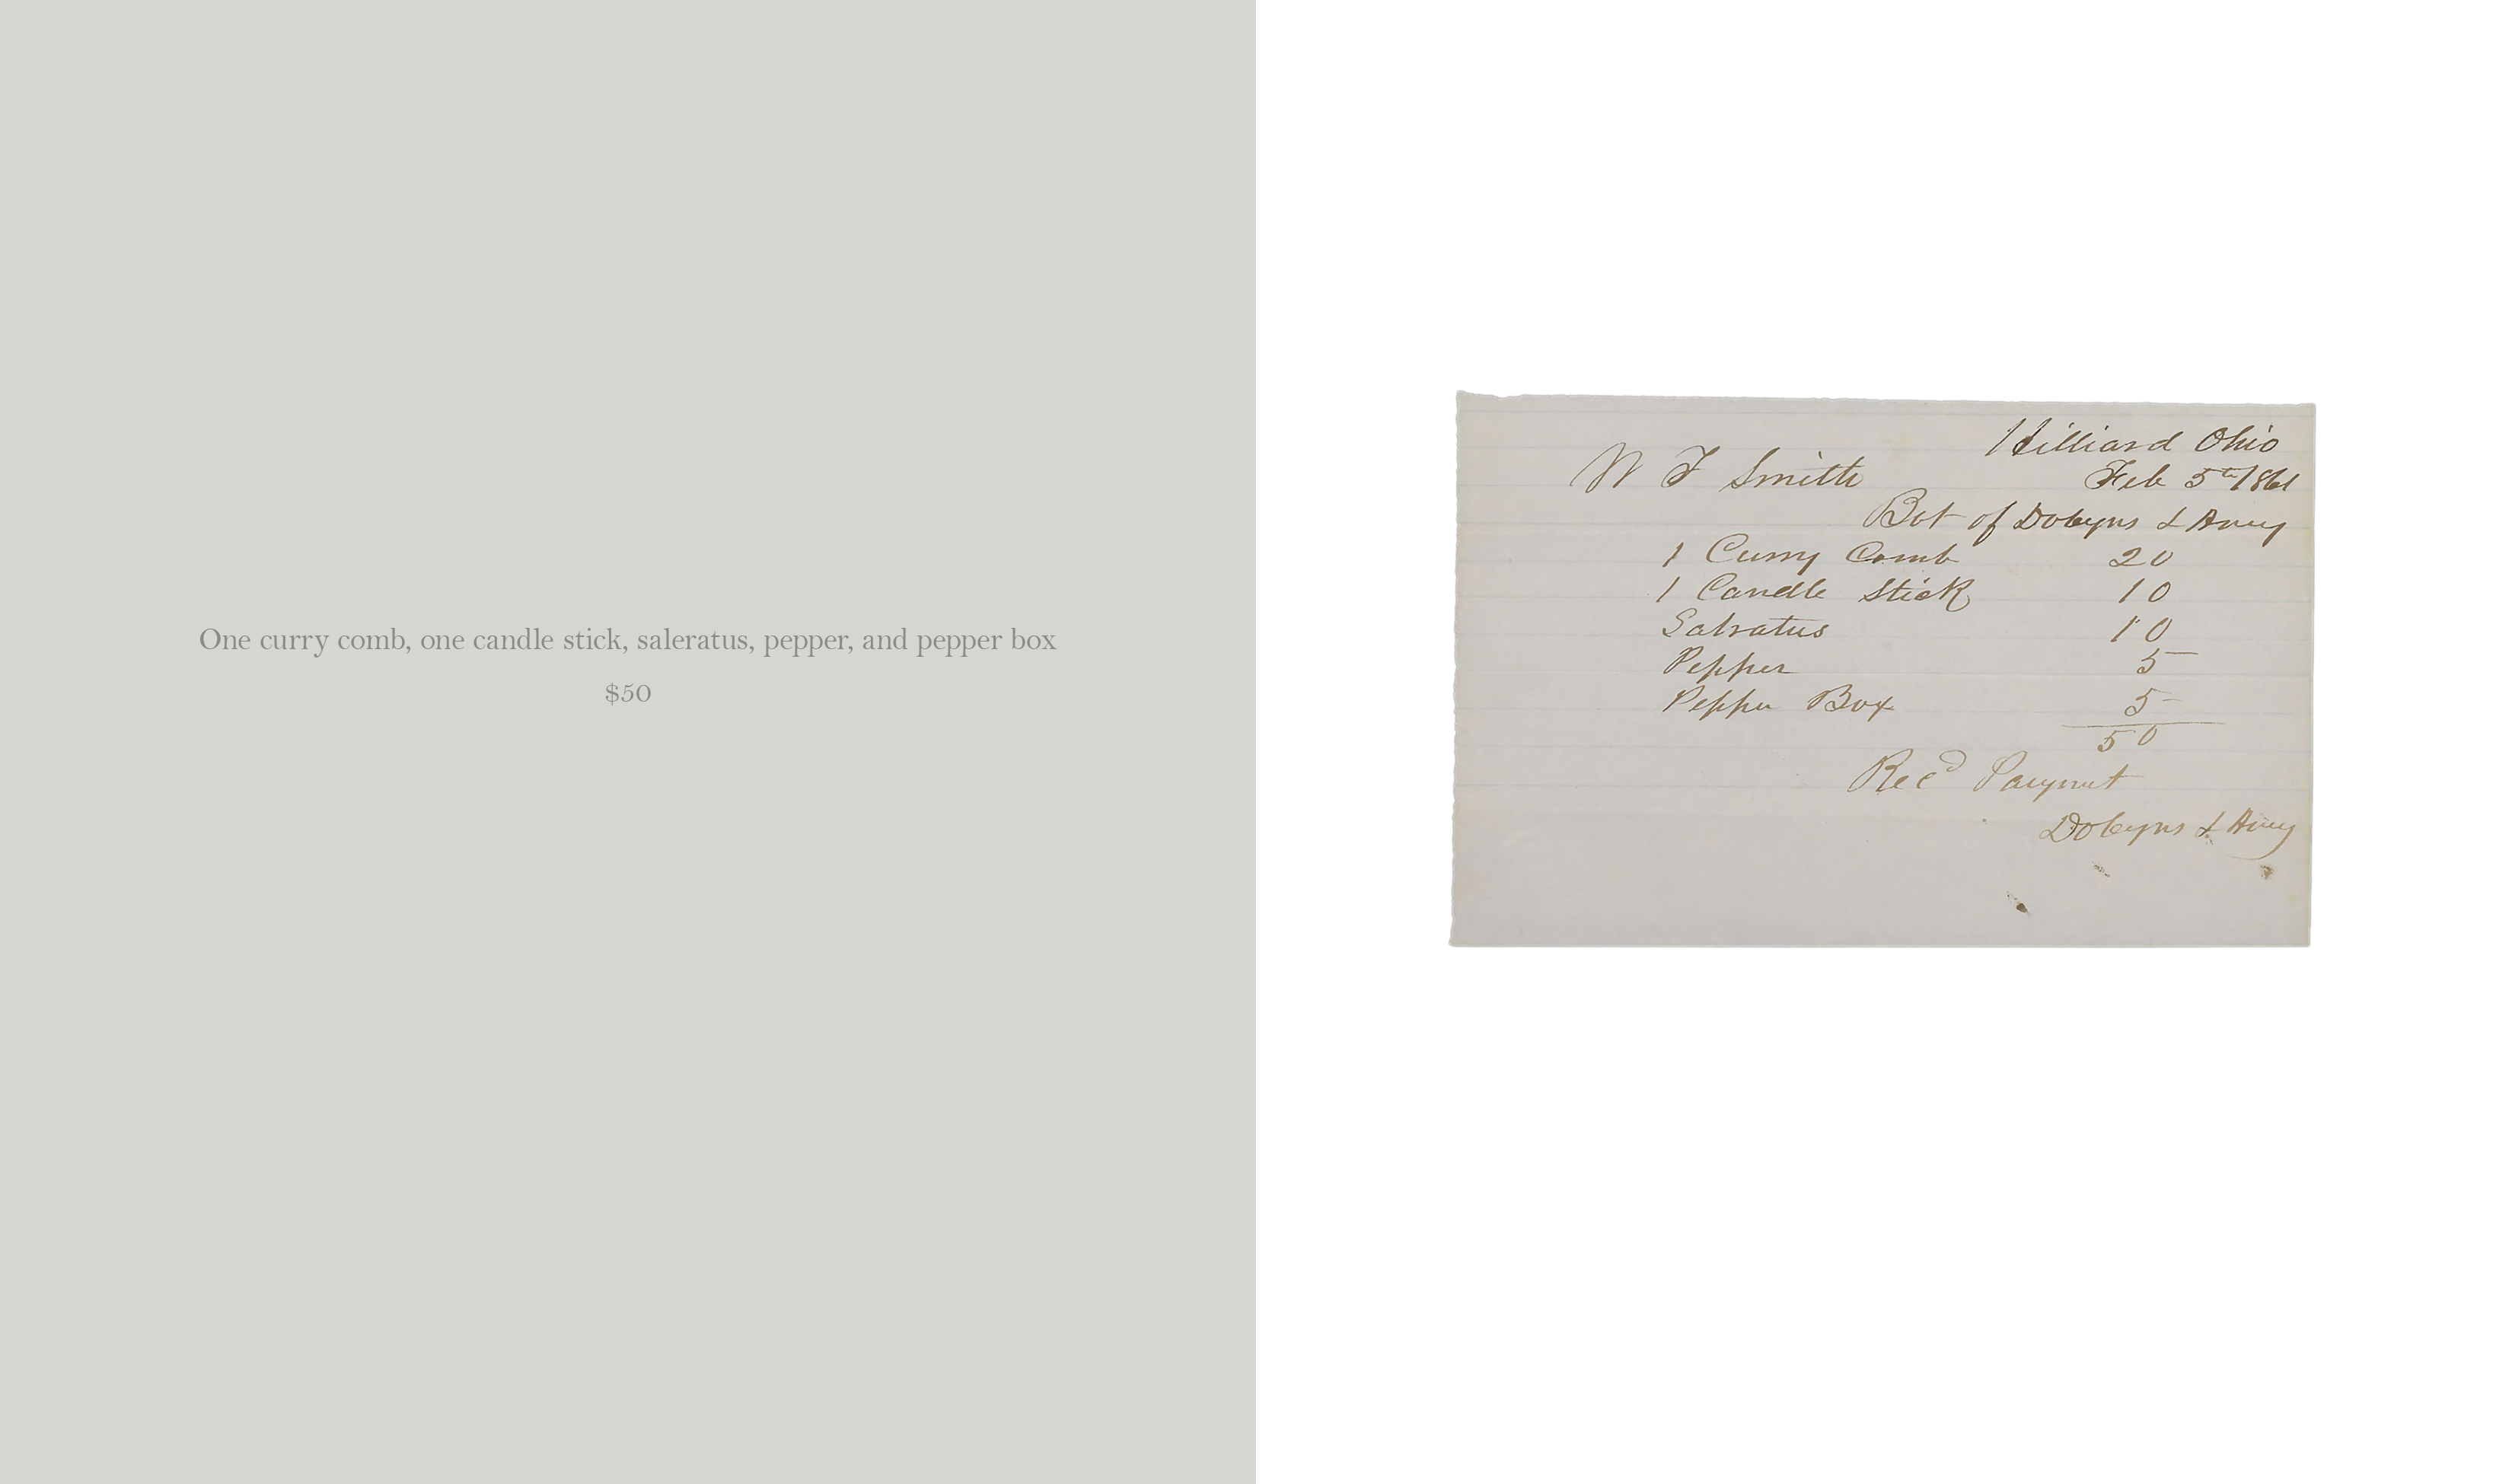 One curry comb, one candle stick, saleratus, pepper, and pepper box
$50
Hilliard Ohio
W F Smith Feb 5th 1861
Bot of Dobyns & Amey
1 Curry Comb 20
1 Candle Stick 10
Salratus 10
Pepper 5
Pepper Box 5
50
Recd Paymnt
Dobyns & Amey